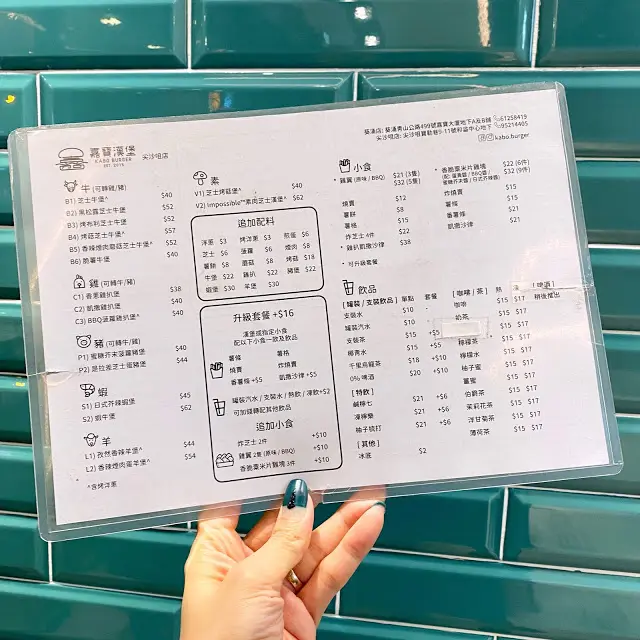 嘉寶漢堡
KABO BURGER
EST. 2016
尖沙咀店
葵涌店: 葵涌青山公路499號嘉寶大廈地下A及B舖 61258419
尖沙咀店: 尖沙咀寶勒巷9-11號和富中心地下 95214405
kabo.burger
牛 (可轉雞/豬)
B1) 芝士牛堡 $40
B2) 黑松露芝士牛堡^ $52
B3) 烤布利芝士牛堡 $52
B4) 烤菇芝士牛堡^ $52
B5) 香辣燈肉蘑菇芝士牛堡^ $52
B6) 脆薯牛堡 $40
雞 (可轉牛/豬)
C1) 香蔥雞扒堡 $38
C2) 凱撒雞扒堡 $40
C3) BBQ菠蘿雞扒堡^ $40
豬 (可轉牛/雞)
P1) 蜜糖芥末菠蘿豬堡 $40
P2) 是拉差芝士蛋豬堡 $44
蝦
S1) 日式芥辣蝦堡 $45
S2) 蝦牛堡 $62
羊
L1) 孜然香辣羊堡^ $44
L2) 香辣煙肉蛋羊堡^ $54
^含烤洋蔥
素
V1) 芝士烤菇堡^ $40
V2) Impossible™素肉芝士漢堡^ $62
追加配料
洋蔥 $3 烤洋蔥 $3 煎蛋 $6
芝士 $6 菠蘿 $6 煙肉 $8
薯餅 $8 蘑菇 $8 烤菇 $18
牛堡 $22 雞扒 $22 豬堡 $22
蝦堡 $30 羊堡 $30
升級套餐 +$16
漢堡或指定小食
配以下小食一款及飲品
薯條 薯格
燒賣 粟米片雞塊
番薯條 +$5 凱撒沙律 +$5
罐裝汽水 / 支裝水 / 熱飲 / 凍飲+$2
可加錢轉配其他飲品
追加小食
炸芝士 2件 +$10
雞翼 2隻 (原味 / BBQ) +$10
香脆粟米片雞塊 3件 +$10
小食
雞翼 (原味 / BBQ) $21 (3隻)
$32 (5隻)
燒賣 $12
薯餅 $8
薯條 $15
薯格 $15
炸芝士 4件 $22
雞扒凱撒沙律 $38
可升級套餐
香脆粟米片雞塊 $22 (6件)
$32 (9件)
炸燒賣 $15
薯條 $15
番薯條 $21
凱撒沙律 $21
飲品
[ 罐裝 / 支裝飲品 ] 單點 套餐
支裝水 $10
罐裝汽水 $10
支茶 $15 +$5
椰青水 $15 +$5
千里烏龍茶 $18 +$10
0% 啤酒 $20 +$10
[ 特飲 ]
鹹檸七 $21 +$6
凍檸樂 $21 +$6
柚子梳打 $21 +$6
[ 其他 ]
冰底 $2
[ 咖啡 / 茶 ] 熱 凍
咖啡 $15 $17
奶茶 $15 $17
檸檬茶 $15 $17
檸檬水 $15 $17
柚子蜜 $15 $17
薑蜜 $15 $17
伯爵茶 $15 $17
茉莉花茶 $15 $17
洋甘菊茶 $15 $17
薄荷茶 $15 $17
[ 啤酒 ]
稍後推出